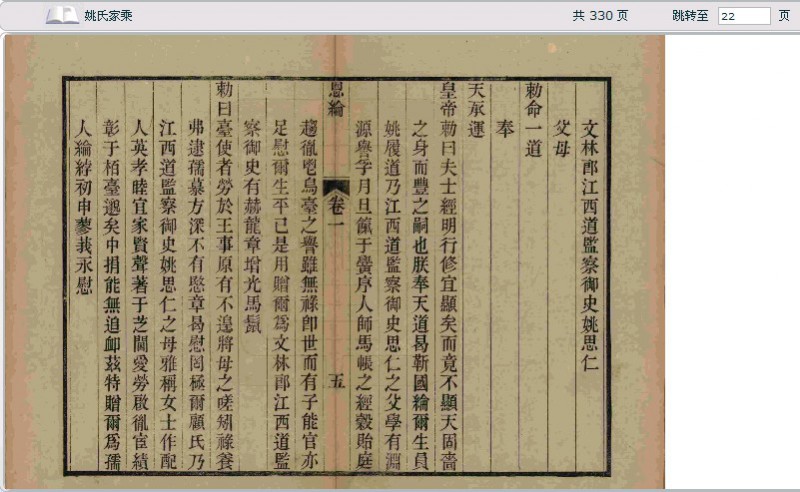 姚氏家乘
共 330 页
跳转至 22 页
文林郎江西道監察御史姚思仁
父母
勅命一道
奉
天承運
皇帝勅曰夫士經明行修宜顯矣而竟不顯天固嗇
之身而豐之嗣也朕奉天道曷靳國綸爾生員
姚履道乃江西道監察御史思仁之父學有淵
源譽孚月旦籲于黌序人師馬帳之經穀貽庭
恩綸
卷一
五
趨徹鳧烏臺之譽雖無祿卽世而有子能官亦
足慰爾生平已是用贈爾爲文林郎江西道監
察御史有赫龍章增光馬鬣
勅曰臺使者勞於王事原有不遑將母之嗟矧祿養
弗逮孺慕方深不有愍章曷慰罔極爾顧氏乃
江西道監察御史姚思仁之母雅稱女士作配
人英孝睦宜家賢聲著于芝閫愛勞啟徹宦績
彰于栢臺邈矣中捐能無追卹茲特贈爾爲孺
人綸綍初申蓼莪永慰